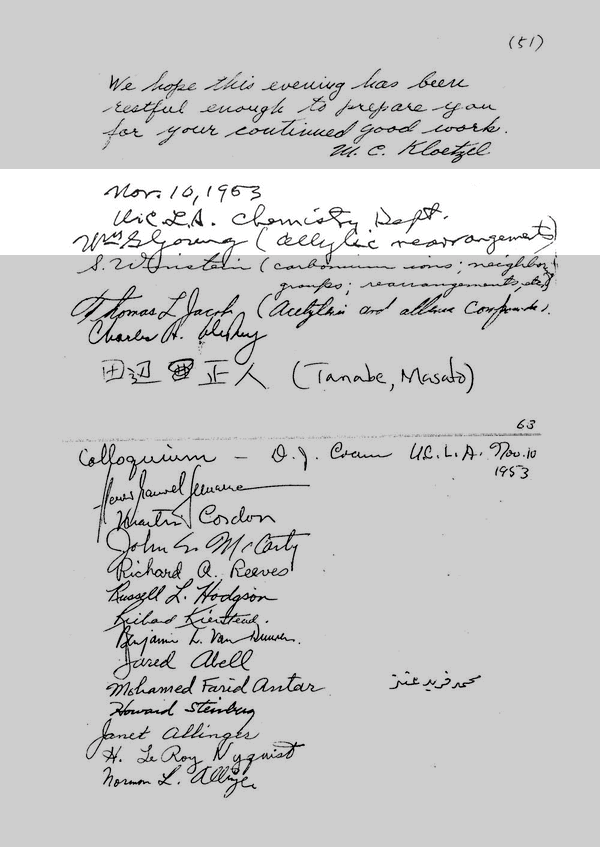 (51)
We hope this evening has been
restful enough to prepare you
for your continued good work.
M. C. Kloetzel
Nov. 10, 1953
U.C.L.A. Chemistry Dept.
Wm G Young (allylic rearrangements)
S. Winstein (carbonium ions; neighbor
groups; rearrangements, etc.)
Thomas L Jacobs (Acetylenic and allene compounds).
Charles A.
田辺 正人 (Tanabe, Masato)
63
Colloquium – D. J. Cram U.C.L.A. Nov. 10
1953
Martin Cordon
John G McCarty
Richard A. Reeves
Russell L. Hodgson
Richard Kierstead.
Benjamin L. Van Duuren.
Jared Abell
Mohamed Farid Antar محمد فريد عنتر
Howard Steinberg
Janet Allinger
H. Le Roy Nyquist
Norman L. Allinger